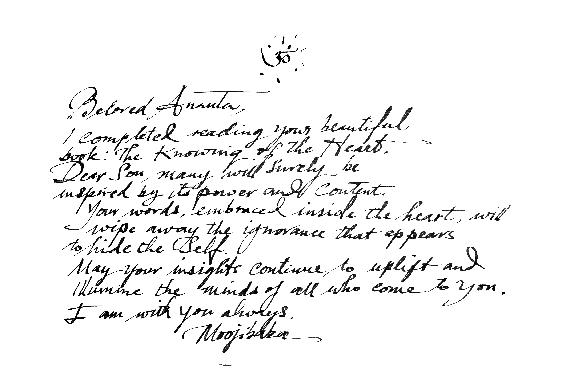 ॐ
Beloved Ananta,
I completed reading your beautiful
book: The Knowing of the Heart.
Dear Son, many will surely be
inspired by its power and content.
Your words, embraced inside the heart, will
wipe away the ignorance that appears
to hide the Self.
May your insights continue to uplift and
illumine the minds of all who come to you.
I am with you always.
Moojibaba